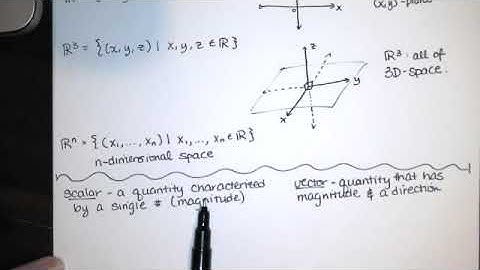 x
(x,y)-plane
ℝ³ = {(x,y,z) | x,y,z ∈ ℝ}
z
y
x
ℝ³: all of
3D-space.
ℝⁿ = {(x₁,...,xₙ) | x₁,...,xₙ ∈ ℝ}
n-dimensional space
scalar - a quantity characterized
by a single # (magnitude)
vector - quantity that has
magnitude & a direction